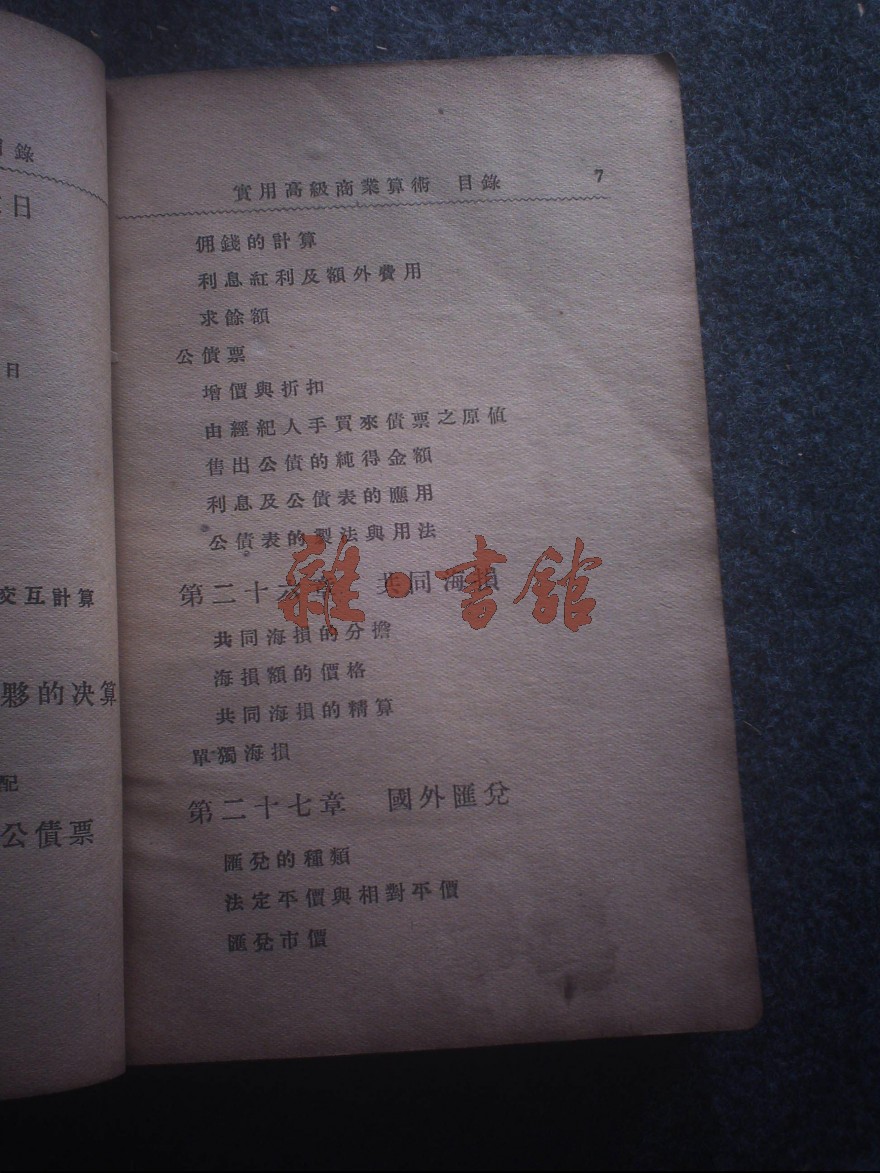 實用高級商業算術 目錄 7
佣錢的計算
利息紅利及額外費用
求餘額
公債票
增價與折扣
由經紀人手買來債票之原値
售出公債的純得金額
利息及公債表的應用
公債表的製法與用法
第二十六章 共同海損
共同海損的分擔
海損額的價格
共同海損的精算
單獨海損
第二十七章 國外匯兌
匯兌的種類
法定平價與相對平價
匯兌市價
錄
日
日
交互計算
夥的決算
配
公債票
雜·書館